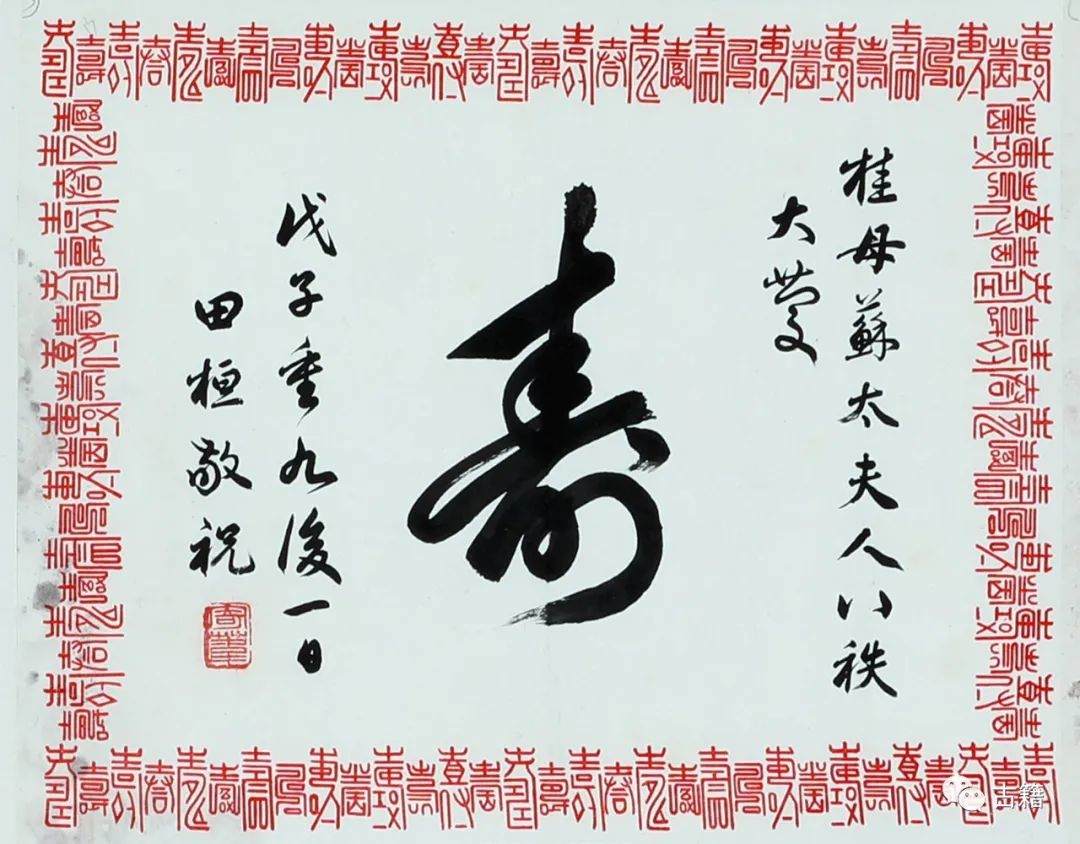 桂母蘇太夫人八秩
大慶
壽
戊子重九後一日
田桓敬祝
古籍